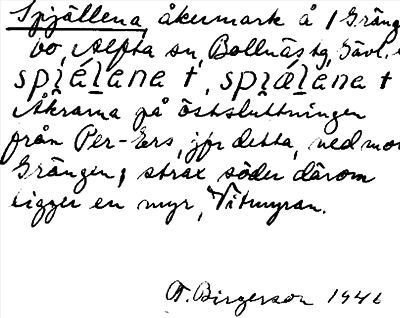 Spjällena, åkermark å 1 Gräng
bo, Alfta sn, Bollnäs tg, Gävl.
spjálena t, spjǽlena t
Åkrarna på östsluttningen
från Per-Ers, jfr detta, ned mo
Grängen; strax söder därom
ligger en myr, Vitmyran.
F. Birgerson 194